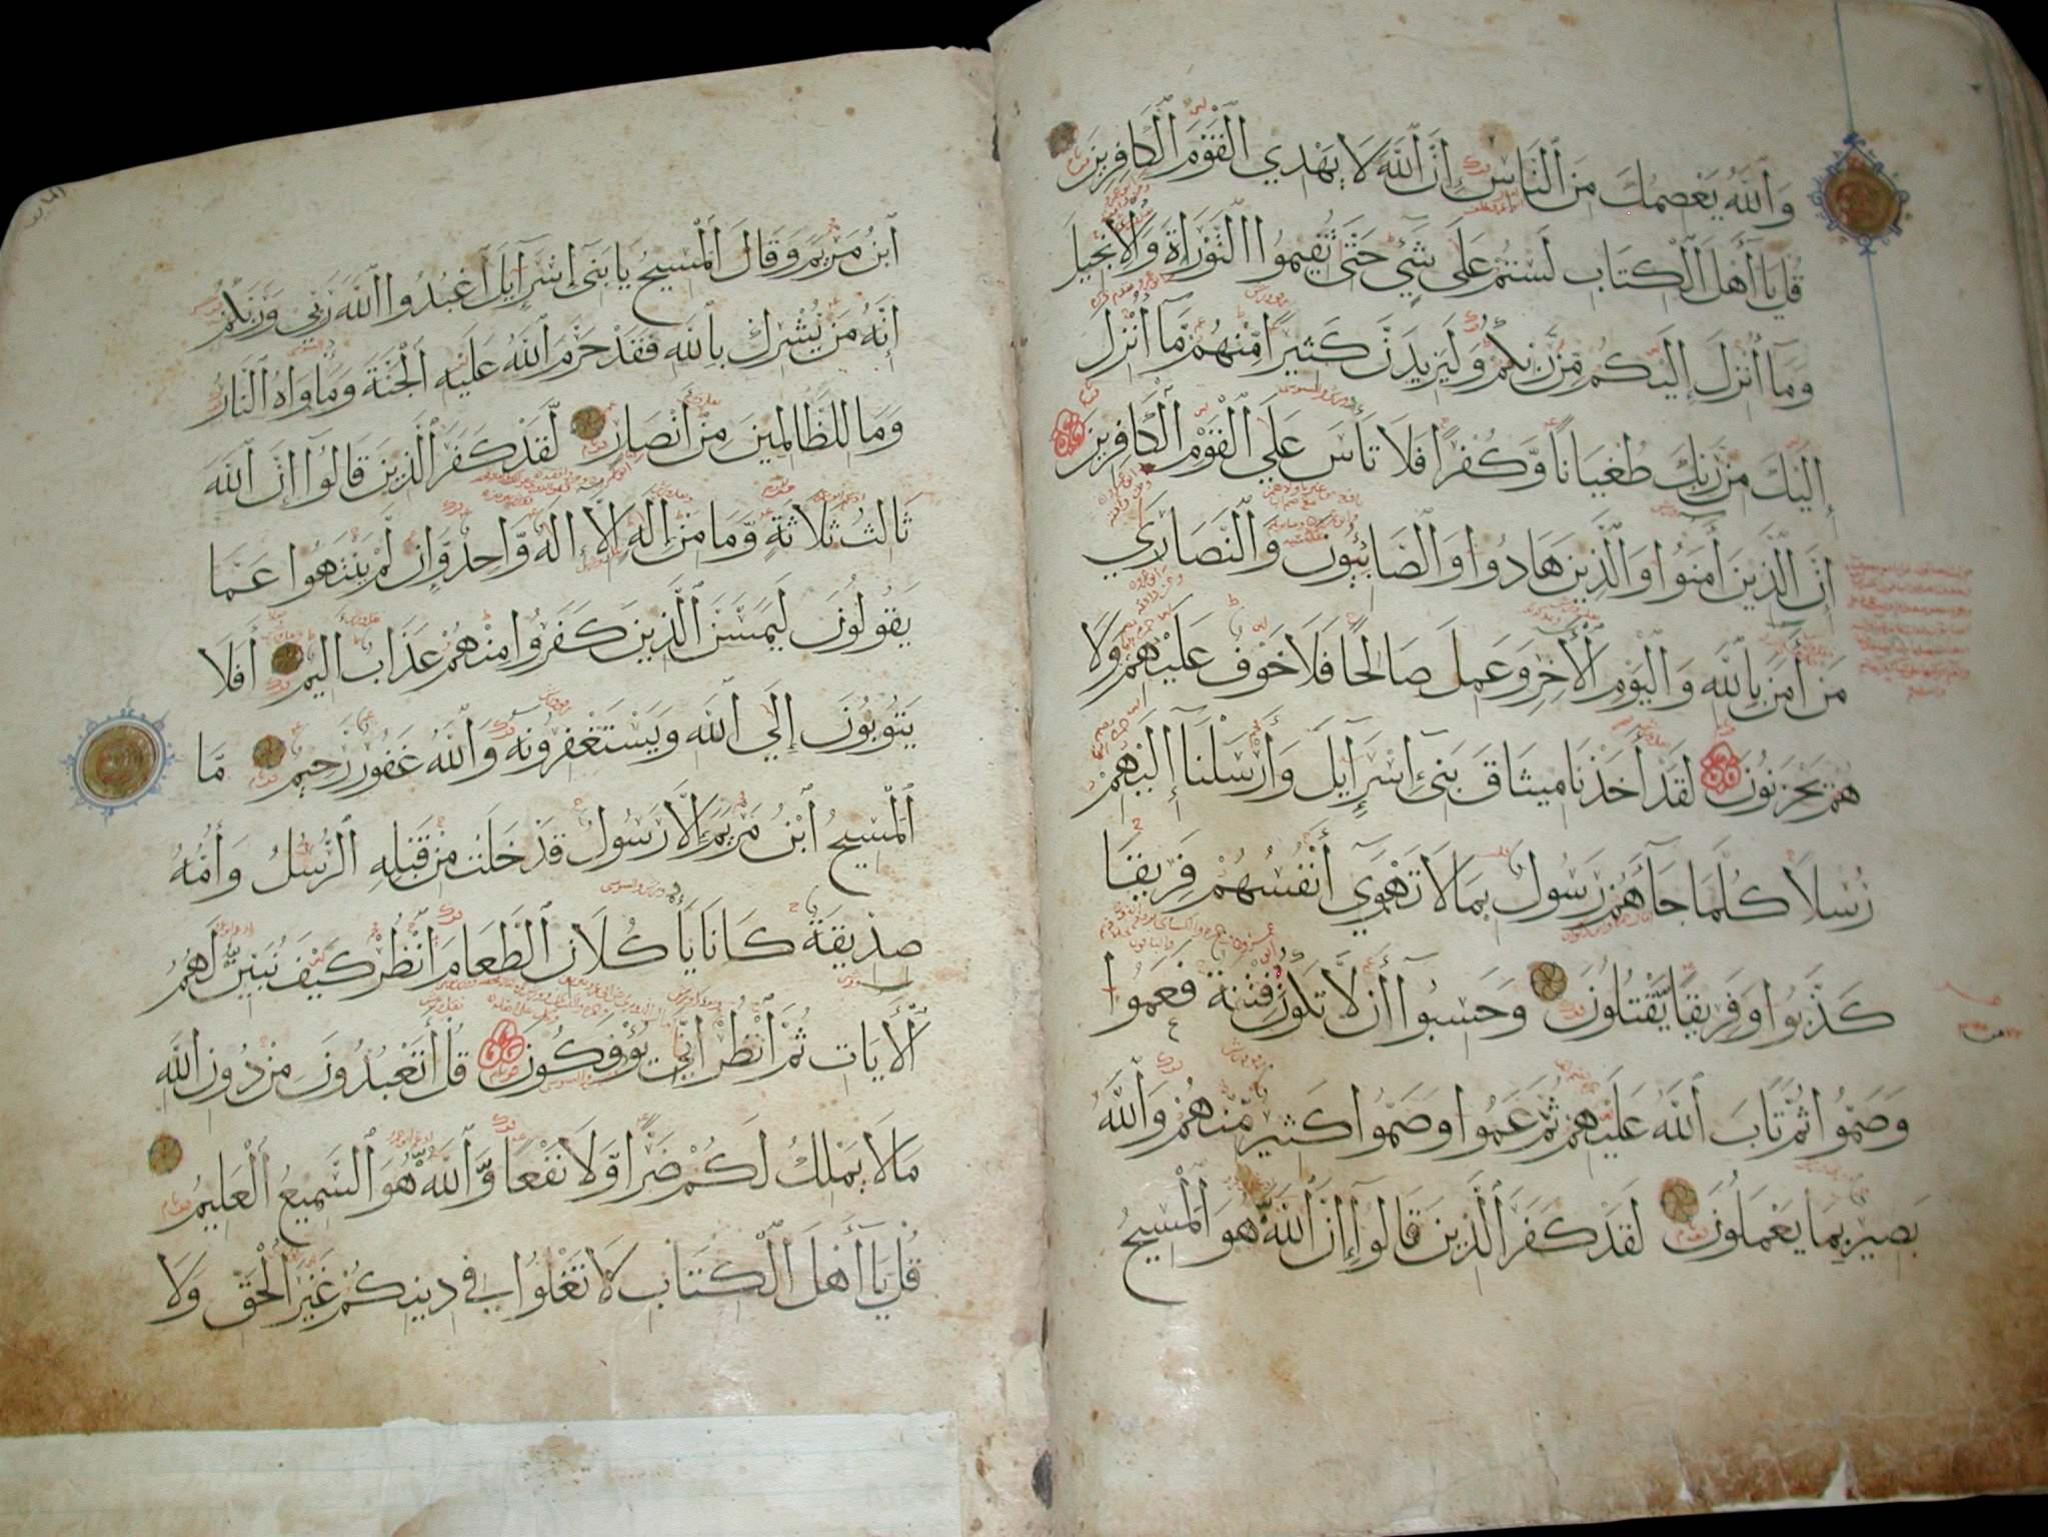 وَٱللَّهُ يَعْصِمُكَ مِنَ ٱلنَّاسِ إِنَّ ٱللَّهَ لَا يَهْدِي ٱلْقَوْمَ ٱلْكَافِرِينَ
قُلْ يَا أَهْلَ ٱلْكِتَابِ لَسْتُمْ عَلَى شَيْءٍ حَتَّى تُقِيمُوا ٱلتَّوْرَاةَ وَٱلْإِنْجِيلَ
وَمَآ أُنْزِلَ إِلَيْكُمْ مِّنْ رَّبِّكُمْ وَلَيَزِيدَنَّ كَثِيرًا مِّنْهُمْ مَّآ أُنْزِلَ
إِلَيْكَ مِنْ رَّبِّكَ طُغْيَانًا وَّكُفْرًا فَلَا تَأْسَ عَلَى ٱلْقَوْمِ ٱلْكَافِرِينَ
إِنَّ ٱلَّذِينَ أٰمَنُوا وَٱلَّذِينَ هَادُوا وَٱلصَّابِئُونَ وَٱلنَّصَارَىٰ
مَنْ أٰمَنَ بِٱللَّهِ وَٱلْيَوْمِ ٱلْأٰخِرِ وَعَمِلَ صَالِحًا فَلَا خَوْفٌ عَلَيْهِمْ وَلَا
هُمْ يَحْزَنُونَ لَقَدْ أَخَذْنَا مِيثَاقَ بَنِىٓ إِسْرَآئِيلَ وَأَرْسَلْنَآ إِلَيْهِمْ
رُسُلًا كُلَّمَا جَآءَهُمْ رَسُولٌ بِمَا لَا تَهْوَىٓ أَنْفُسُهُمْ فَرِيقًا
كَذَّبُوا وَفَرِيقًا يَّقْتُلُونَ وَحَسِبُوٓا أَنْ لَّا تَكُونَ فِتْنَةٌ فَعَمُوا
وَصَمُّوا ثُمَّ تَابَ ٱللَّهُ عَلَيْهِمْ ثُمَّ عَمُوا وَصَمُّوا كَثِيرٌ مِّنْهُمْ وَٱللَّهُ
بَصِيرٌ بِمَا يَعْمَلُونَ لَقَدْ كَفَرَ ٱلَّذِينَ قَالُوٓا إِنَّ ٱللَّهَ هُوَ ٱلْمَسِيحُ
ٱبْنُ مَرْيَمَ وَقَالَ ٱلْمَسِيحُ يَا بَنِىٓ إِسْرَآئِيلَ ٱعْبُدُوا ٱللَّهَ رَبِّي وَرَبَّكُمْ
إِنَّهُ مَنْ يُّشْرِكْ بِٱللَّهِ فَقَدْ حَرَّمَ ٱللَّهُ عَلَيْهِ ٱلْجَنَّةَ وَمَأْوَاهُ ٱلنَّارُ
وَمَا لِلظَّالِمِينَ مِنْ أَنْصَارٍ لَّقَدْ كَفَرَ ٱلَّذِينَ قَالُوٓا إِنَّ ٱللَّهَ
ثَالِثُ ثَلَاثَةٍ وَّمَا مِنْ إِلٰهٍ إِلَّآ إِلٰهٌ وَّاحِدٌ وَّإِنْ لَّمْ يَنْتَهُوا عَمَّا
يَقُولُونَ لَيَمَسَّنَّ ٱلَّذِينَ كَفَرُوا مِنْهُمْ عَذَابٌ أَلِيمٌ أَفَلَا
يَتُوبُونَ إِلَى ٱللَّهِ وَيَسْتَغْفِرُونَهُ وَٱللَّهُ غَفُورٌ رَّحِيمٌ مَّا
ٱلْمَسِيحُ ٱبْنُ مَرْيَمَ إِلَّا رَسُولٌ قَدْ خَلَتْ مِنْ قَبْلِهِ ٱلرُّسُلُ وَأُمُّهُ
صِدِّيقَةٌ كَانَا يَأْكُلَانِ ٱلطَّعَامَ ٱنْظُرْ كَيْفَ نُبَيِّنُ لَهُمُ
ٱلْأٰيَاتِ ثُمَّ ٱنْظُرْ أَنَّى يُؤْفَكُونَ قُلْ أَتَعْبُدُونَ مِنْ دُونِ ٱللَّهِ
مَا لَا يَمْلِكُ لَكُمْ ضَرًّا وَّلَا نَفْعًا وَّٱللَّهُ هُوَ ٱلسَّمِيعُ ٱلْعَلِيمُ
قُلْ يَآ أَهْلَ ٱلْكِتَابِ لَا تَغْلُوا فِي دِينِكُمْ غَيْرَ ٱلْحَقِّ وَلَا